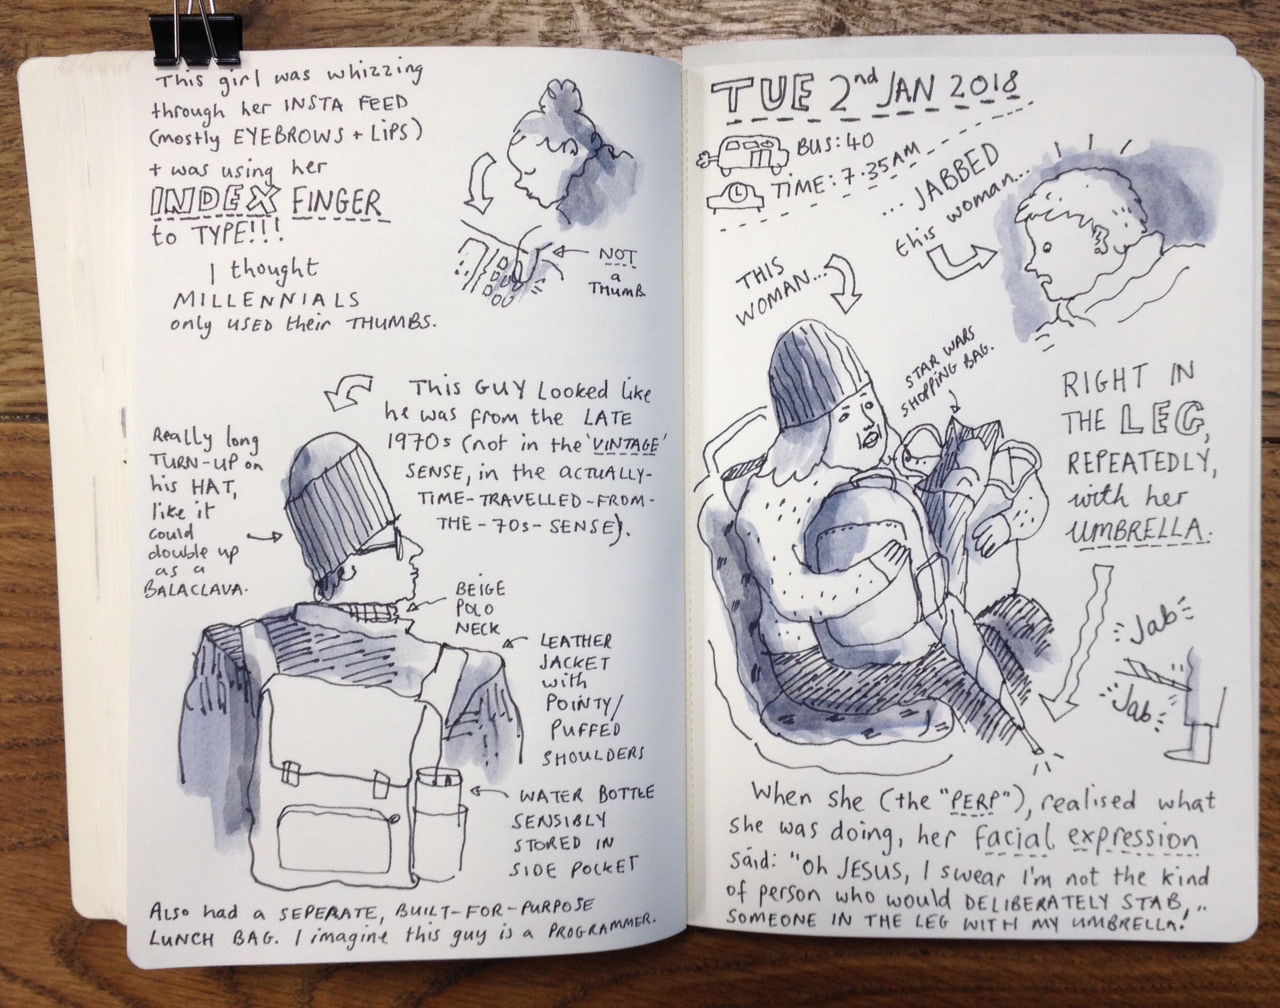 This girl was whizzing
through her INSTA FEED
(mostly EYEBROWS + LIPS)
+ was using her
INDEX FINGER
to TYPE!!!
I thought
MILLENNIALS
only USED their THUMBS.
NOT
a
THUMB
This GUY Looked like
he was from the LATE
1970s (not in the 'VINTAGE'
SENSE, in the ACTUALLY-
TIME-TRAVELLED-FROM-
THE-70s-SENSE).
Really long
TURN-UP on
his HAT,
like it
could
double up
as a
BALACLAVA.
BEIGE
POLO
NECK
LEATHER
JACKET
with
POINTY/
PUFFED
SHOULDERS
WATER BOTTLE
SENSIBLY
STORED IN
SIDE POCKET
Also had a SEPERATE, BUILT-FOR-PURPOSE
LUNCH BAG. I imagine this guy is a PROGRAMMER.
TUE 2nd JAN 2018
BUS: 40
TIME: 7.35AM
THIS
WOMAN...
... JABBED
this woman...
STAR WARS
SHOPPING BAG.
RIGHT IN
THE LEG,
REPEATEDLY,
with her
UMBRELLA.
Jab
Jab
When she (the "PERP"), realised what
she was doing, her facial expression
said: "Oh JESUS, I swear I'm not the kind
of person who would DELIBERATELY STAB
SOMEONE IN THE LEG WITH MY UMBRELLA!"